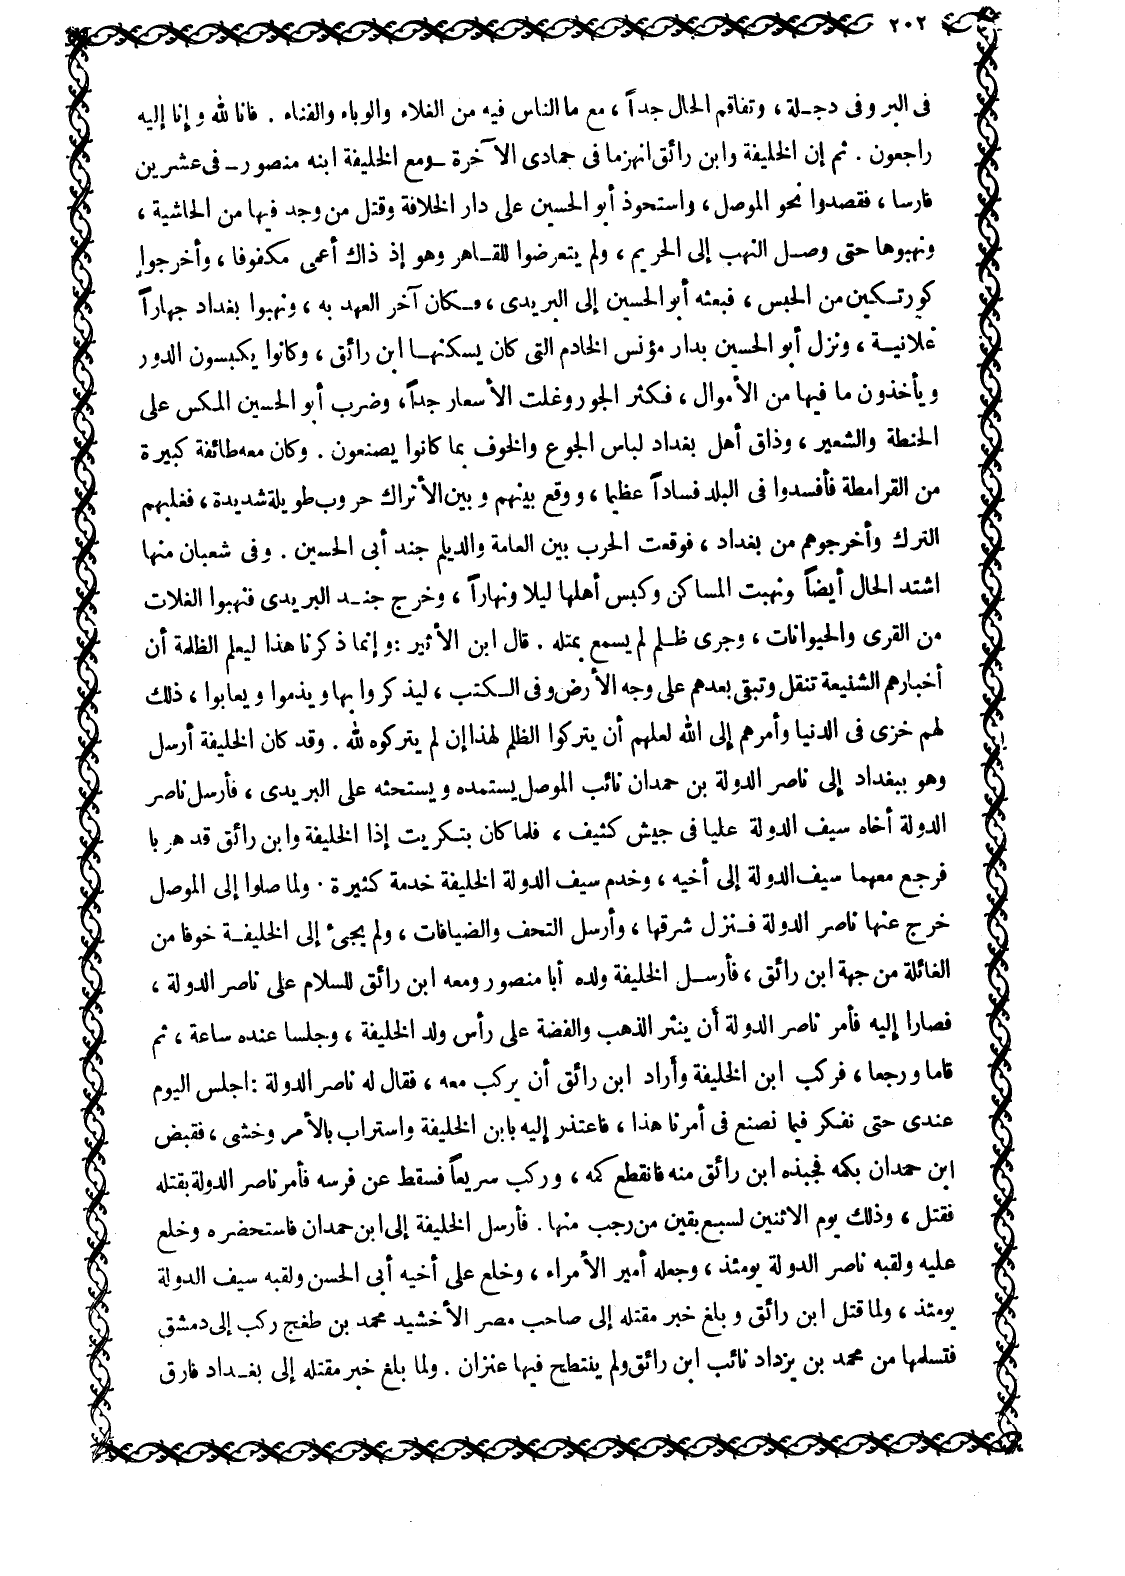 ٢٠٢
فى البر وفى دجلة ، وتفاقم الحال جداً ، مع ما الناس فيه من الغلاء والوباء والفناء . فانا لله وإنا إليه
راجعون . ثم إن الخليفة وابن رائق انهزما فى جمادى الآخرة ـ ومع الخليفة ابنه منصور ـ فى عشرين
فارسا ، فقصدوا نحو الموصل ، واستحوذ أبو الحسين على دار الخلافة وقتل من وجد فيها من الحاشية ،
ونهبوها حتى وصل النهب إلى الحريم ، ولم يتعرضوا للقاهر وهو إذ ذاك أعمى مكفوفا ، وأخرجوا
كورتكين من الحبس ، فبعثه أبو الحسين إلى البريدى ، فكان آخر العهد به ، ونهبوا بغداد جهاراً
علانية ، ونزل أبو الحسين بدار مؤنس الخادم التى كان يسكنها ابن رائق ، وكانوا يكبسون الدور
ويأخذون ما فيها من الأموال ، فكثر الجور وغلت الأسعار جداً ، وضرب أبو الحسين المكس على
الحنطة والشعير ، وذاق أهل بغداد لباس الجوع والخوف بما كانوا يصنعون . وكان معه طائفة كبيرة
من القرامطة فأفسدوا فى البلد فساداً عظيما ، ووقع بينهم وبين الأتراك حروب طويلة شديدة ، فغلبهم
الترك وأخرجوهم من بغداد ، فوقعت الحرب بين العامة والديلم جند أبى الحسين . وفى شعبان منها
اشتد الحال أيضاً ونهبت المساكن وكبس أهلها ليلا ونهاراً ، وخرج جند البريدى فنهبوا الغلات
من القرى والحيوانات ، وجرى ظلم لم يسمع بمثله . قال ابن الأثير : وإنما ذكرنا هذا ليعلم الظلمة أن
أخبارهم الشنيعة تنقل وتبقى بعدهم على وجه الأرض وفى الكتب ، ليذكروا بها ويذموا ويعابوا ، ذلك
لهم خزى فى الدنيا وأمرهم إلى الله لعلهم أن يتركوا الظلم لهذا إن لم يتركوه لله . وقد كان الخليفة أرسل
وهو ببغداد إلى ناصر الدولة بن حمدان نائب الموصل يستمده ويستحثه على البريدى ، فأرسل ناصر
الدولة أخاه سيف الدولة عليا فى جيش كثيف ، فلما كان بتكريت إذا الخليفة وابن رائق قد هربا
فرجع معهما سيف الدولة إلى أخيه ، وخدم سيف الدولة الخليفة خدمة كثيرة . ولما صلوا إلى الموصل
خرج عنها ناصر الدولة فنزل شرقها ، وأرسل التحف والضيافات ، ولم يجىٔ إلى الخليفة خوفا من
الغائلة من جهة ابن رائق ، فأرسل الخليفة ولده أبا منصور ومعه ابن رائق للسلام على ناصر الدولة ،
فصارا إليه فأمر ناصر الدولة أن ينثر الذهب والفضة على رأس ولد الخليفة ، وجلسا عنده ساعة ، ثم
قاما ورجعا ، فركب ابن الخليفة وأراد ابن رائق أن يركب معه ، فقال له ناصر الدولة : اجلس اليوم
عندى حتى نفكر فيما نصنع فى أمرنا هذا ، فاعتذر إليه بابن الخليفة واستراب بالأمر وخشى ، فقبض
ابن حمدان بكمه فجبذه ابن رائق منه فانقطع كمه ، وركب سريعاً فسقط عن فرسه فأمر ناصر الدولة بقتله
فقتل ، وذلك يوم الاثنين لسبع بقين من رجب منها . فأرسل الخليفة إلى ابن حمدان فاستحضره وخلع
عليه ولقبه ناصر الدولة يومئذ ، وجعله أمير الأمراء ، وخلع على أخيه أبى الحسن ولقبه سيف الدولة
يومئذ ، ولما قتل ابن رائق وبلغ خبر مقتله إلى صاحب مصر الأخشيد محمد بن طغج ركب إلى دمشق
فتسلمها من محمد بن يزداد نائب ابن رائق ولم ينتطح فيها عنزان . ولما بلغ خبر مقتله إلى بغداد فارق